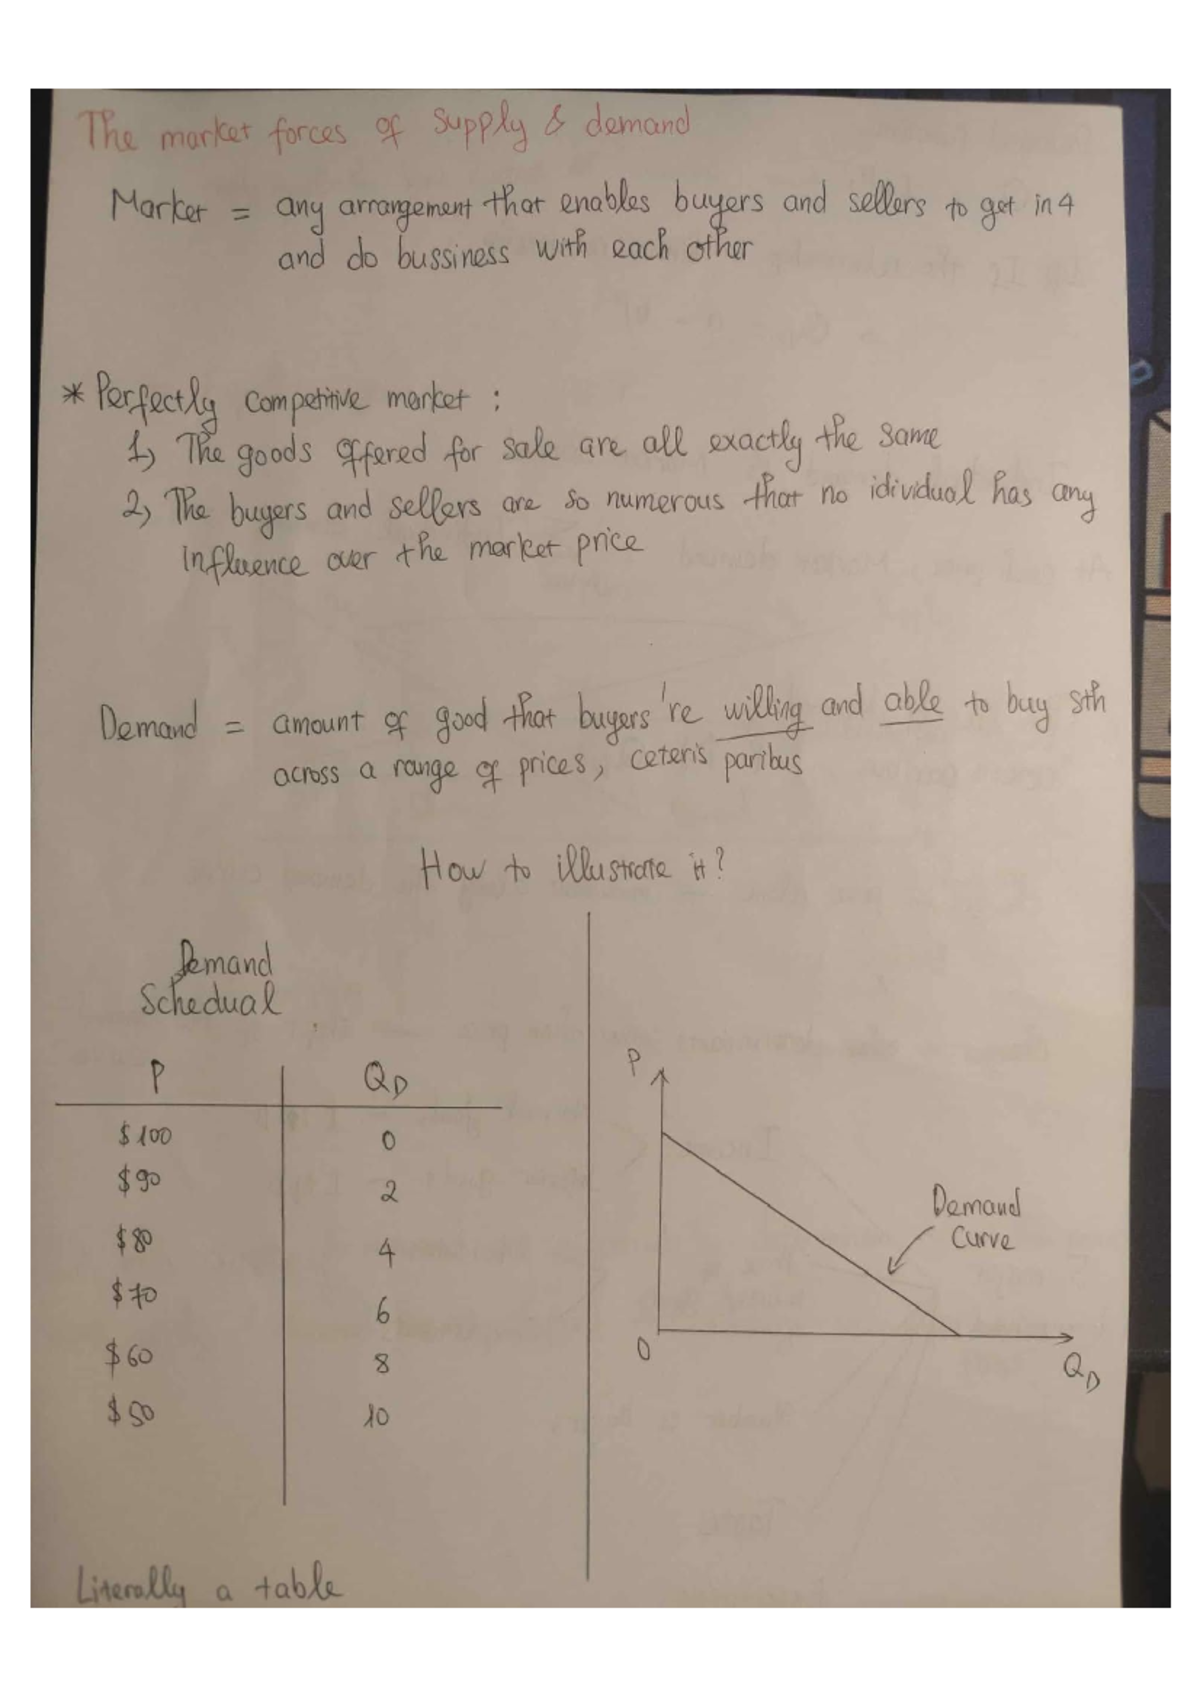 The market forces of supply & demand
Market = any arrangement that enables buyers and sellers to get in4
and do bussiness with each other
* Perfectly competitive market :
1) The goods offered for sale are all exactly the same
2) The buyers and sellers are so numerous that no idividual has any
influence over the market price
Demand = amount of good that buyers 're willing and able to buy sth
across a range of prices, ceteris paribus
How to illustrate it?
Demand
Schedual
P QD
$100 0
$90 2
$80 4
$70 6
$60 8
$50 10
Literally a table
P
Demand
Curve
0
QD